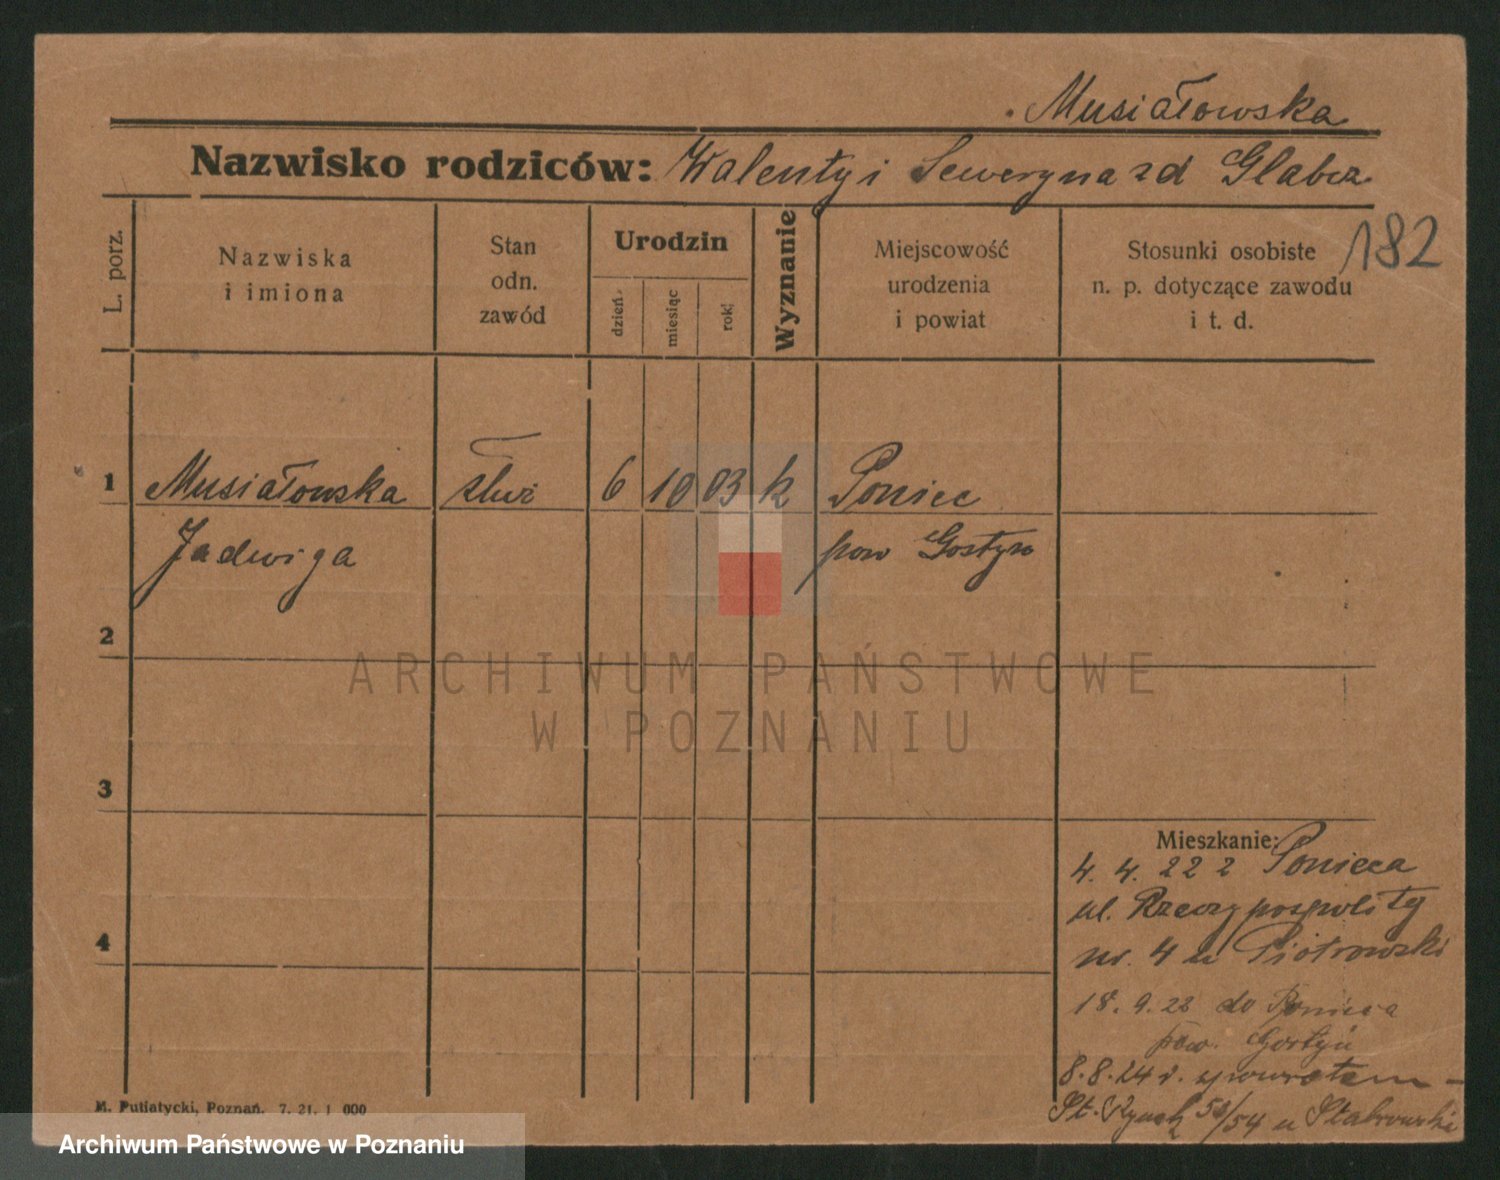 Musiałowska
Nazwisko rodziców: Walenty i Seweryna zd Glabcz
182
L. porz.
Nazwiska
i imiona
Stan
odn.
zawód
Urodzin
dzień
miesiąc
rok
Wyznanie
Miejscowość
urodzenia
i powiat
Stosunki osobiste
n. p. dotyczące zawodu
i t. d.
1 Musiałowska służ 6 10 03 k Poniec
Jadwiga pow Gostyń
2
3
4
Mieszkanie:
4. 4. 22 z Ponieca
ul. Rzeczypospolity
nr. 4 u Piotrowski
18. 9. 22 do Ponieca
pow. Gostyń
8. 8. 24 r. zpowrotem -
St. Rynek 53/54 u
M. Putiatycki, Poznań. 7. 21. 1 000
ARCHIWUM PAŃSTWOWE
W POZNANIU
Archiwum Państwowe w Poznaniu